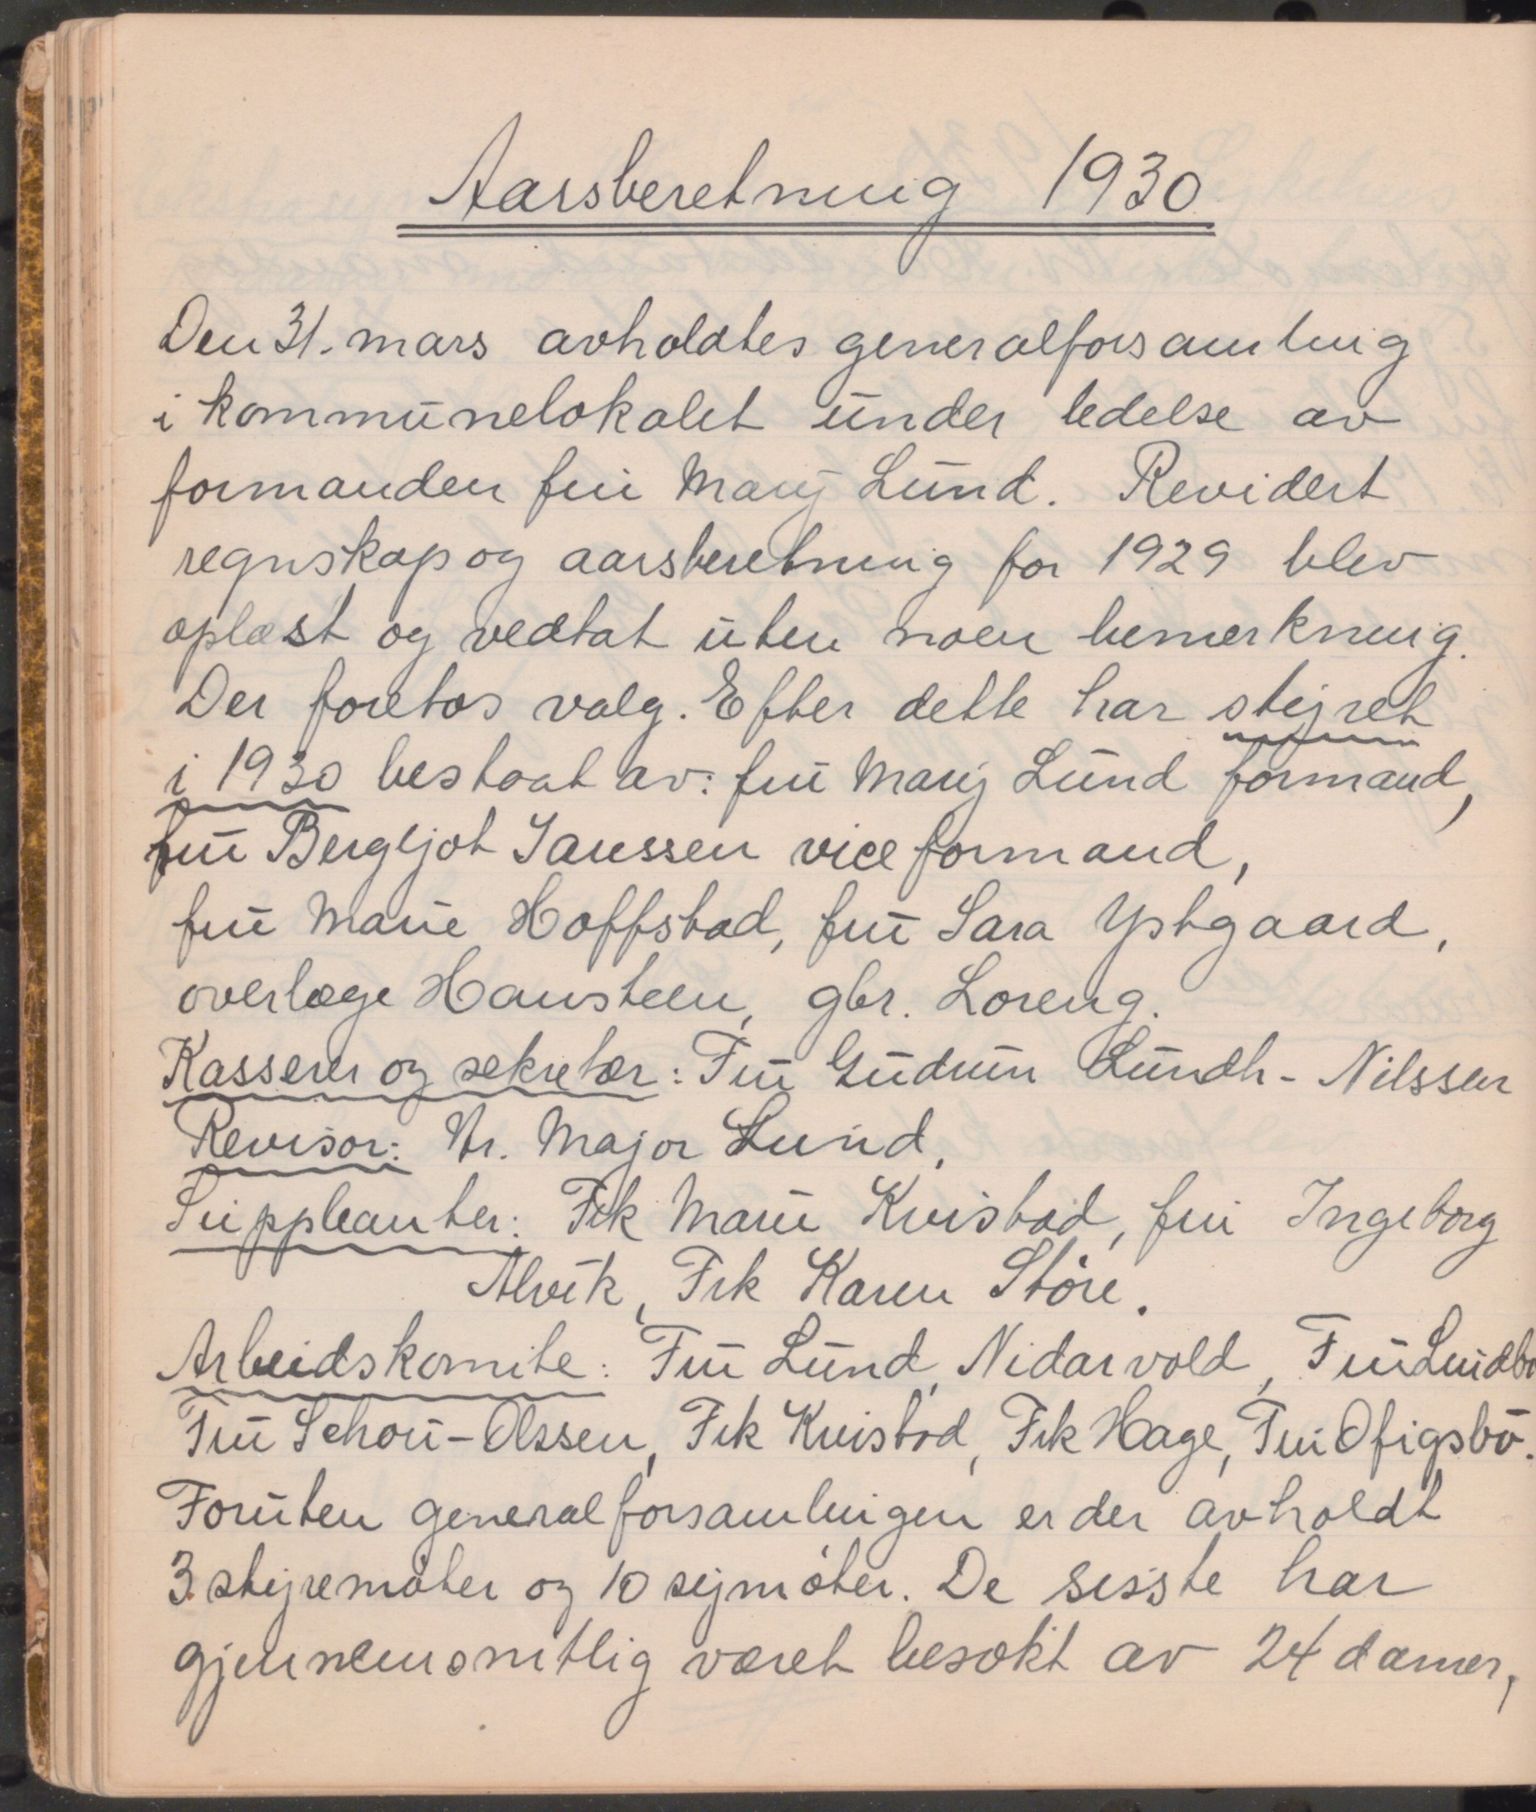 Aarsberetning 1930
Den 31. mars avholdtes generalforsamling
i kommunelokalet under ledelse av
formanden fru Mary Lund. Revidert
regnskap og aarsberetning for 1929 blev
oplæst og vedtat uten noen bemerkning.
Der foretos valg. Efter dette har styret
i 1930 bestaat av: fru Mary Lund formand,
fru Bergljot Janssen viceformand,
fru Marie Hoffstad, fru Sara Ystgaard,
overlæge Hansteen, gbr. Loreng.
Kasserer og sekretær: Fru Gudrun Lundh-Nilssen
Revisor: Hr. Major Lund.
Suppleanter: Frk Marie Kvistad, fru Ingeborg
Alvik, Frk Karen Støre.
Arbeidskomite: Fru Lund, Nidarvold, Fru
Fru Schou-Olssen, Frk Kvistad, Frk Hage, Fru Ofigsbø.
Foruten generalforsamlingen er der avholdt
3 styremøter og 10 symøter. De sisste har
gjennemsnitlig været besøkt av 24 damer,